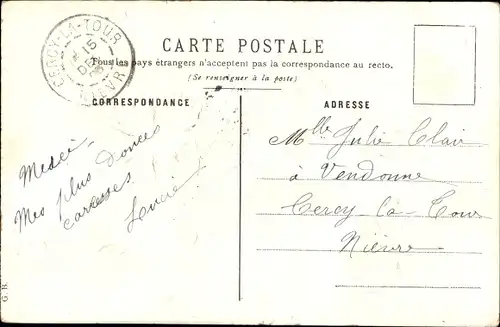 CERCY-LA-TOUR
15
NIEVRE
CARTE POSTALE
Tous les pays étrangers n'acceptent pas la correspondance au recto.
(Se renseigner à la poste)
CORRESPONDANCE
Merci,
Mes plus douces
caresses
Lucie
ADRESSE
Mlle Julie Clair
à Vendonne
Cercy-la-Tour
Nièvre
G. B.